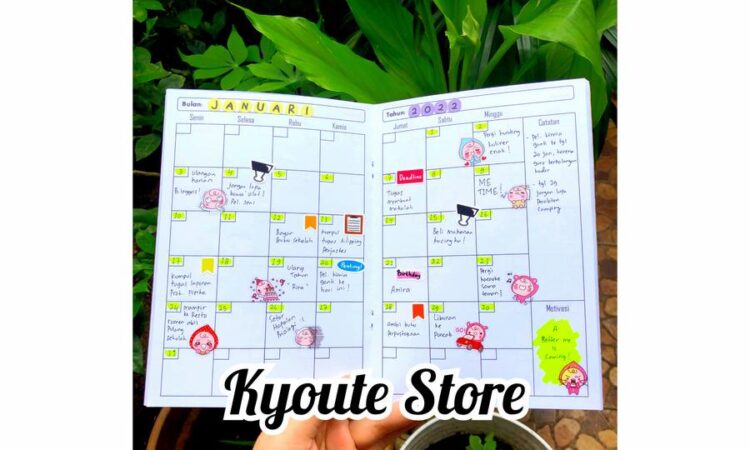 Bulan: JANUARI
Tahun: 2022
Senin Selasa Rabu Kamis
Jumat Sabtu Minggu Catatan
1
2
Pergi hunting
kuliner
enak!
3
ulangan
harian
B. Inggris!
4
Jangan lupa
bawa alat!
Pel. Seni
5
6
7
Deadline
Tugas
membuat
makalah
8
9
ME
TIME!
10
11
12
13
kumpul
tugas kliping
Penjaskes
25
Beli makanan
kucing ku!
26
17
Kumpul
tugas laporan
18
19
ulang
Tahun
"Rina"
20
Penting!
Pel. kimia
ganti ke
hari ini!
21
Birthday
Amira
22
23
Pergi
bersama
teman!
24
mampir
ke Resto
25
26
27
28
ambil buku
Perpustakaan
29
Liburan
ke Puncak
30
GO!
Motivasi
A
Better me
is
Coming!
- Pel. kimia
ganti ke tgl
20 jan, karena
guru berhalangan
hadir
- tgl 29
jangan lupa
Kyoute Store